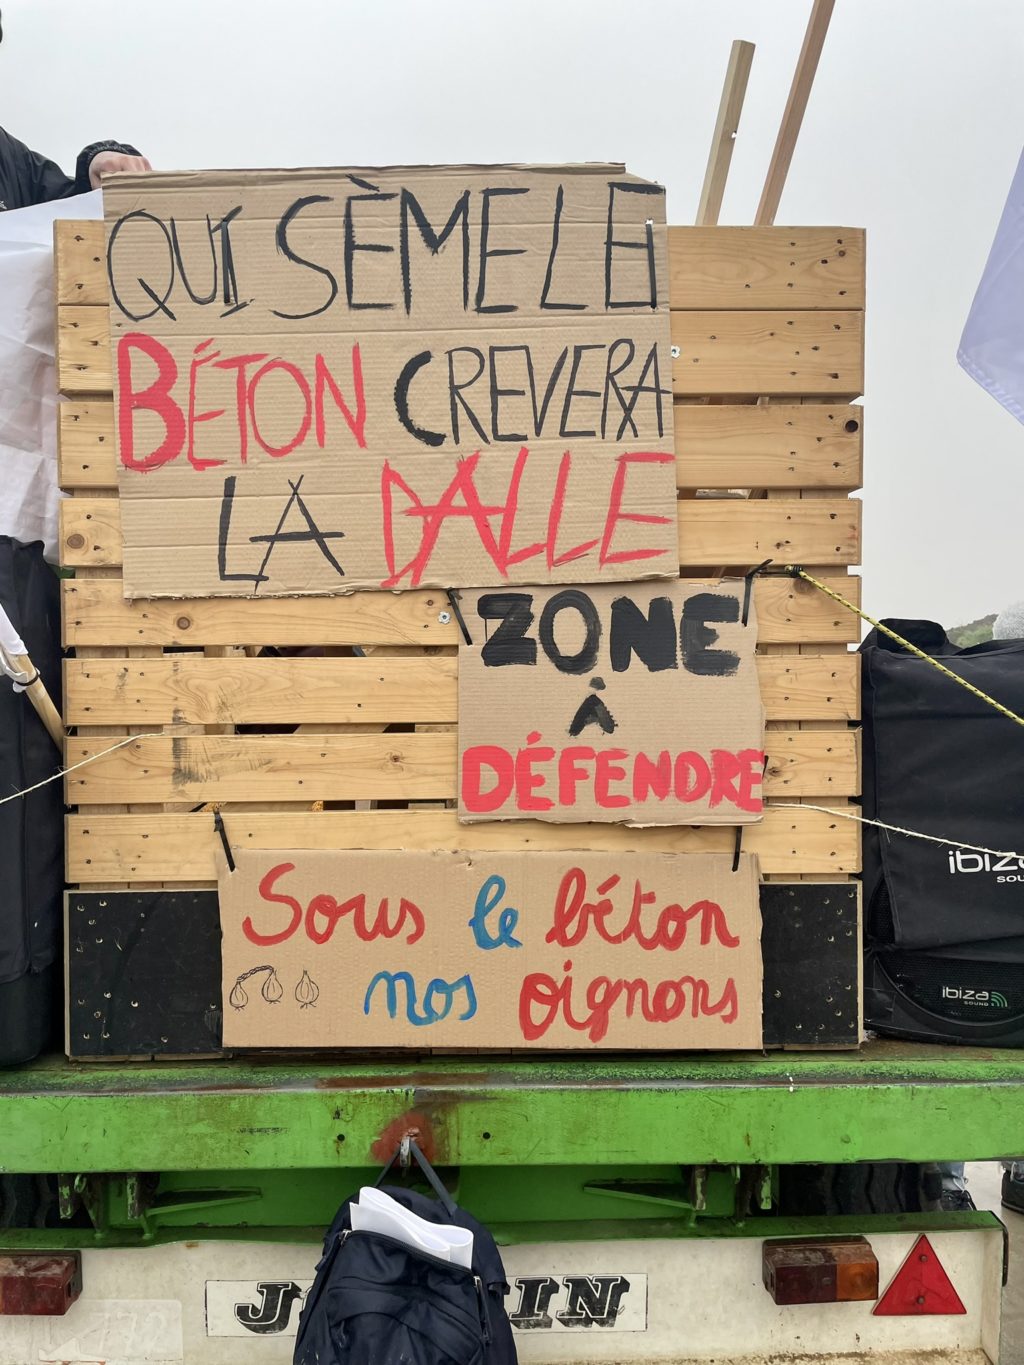 QUI SÈME LE
BÉTON CREVERA
LA DALLE
ZONE
À
DÉFENDRE
Sous le béton
nos oignons
ibiza
SOUND